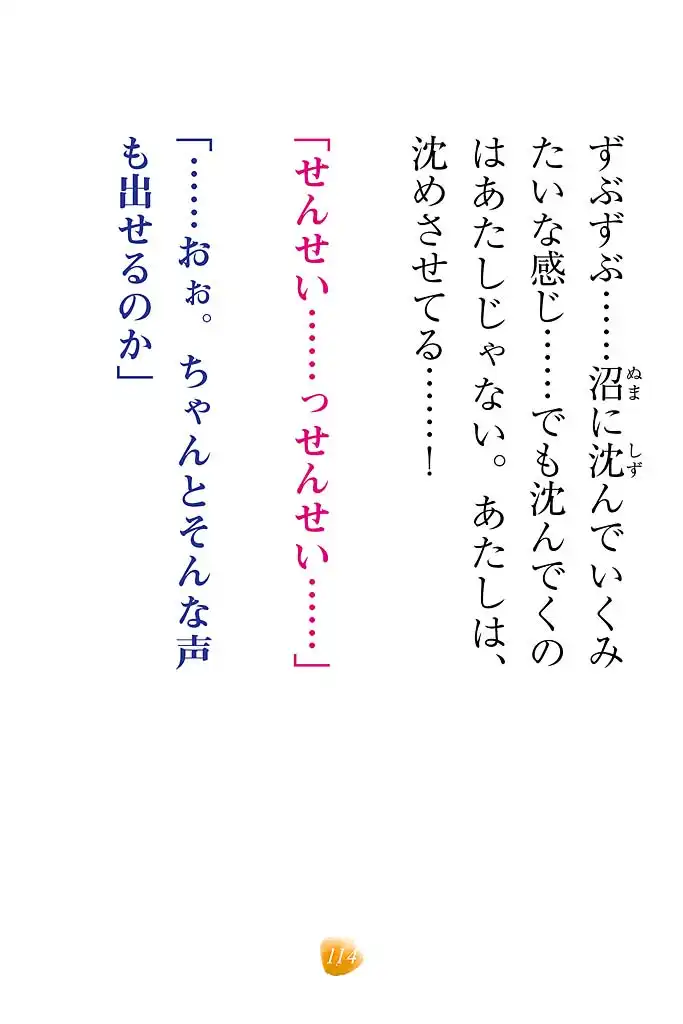 ずぶずぶ……沼に沈んでいくみ
たいな感じ……でも沈んでくの
はあたしじゃない。あたしは、
沈めさせてる……！
「せんせい……っせんせい……」
「……おぉ。ちゃんとそんな声
も出せるのか」
ぬま
しず
114